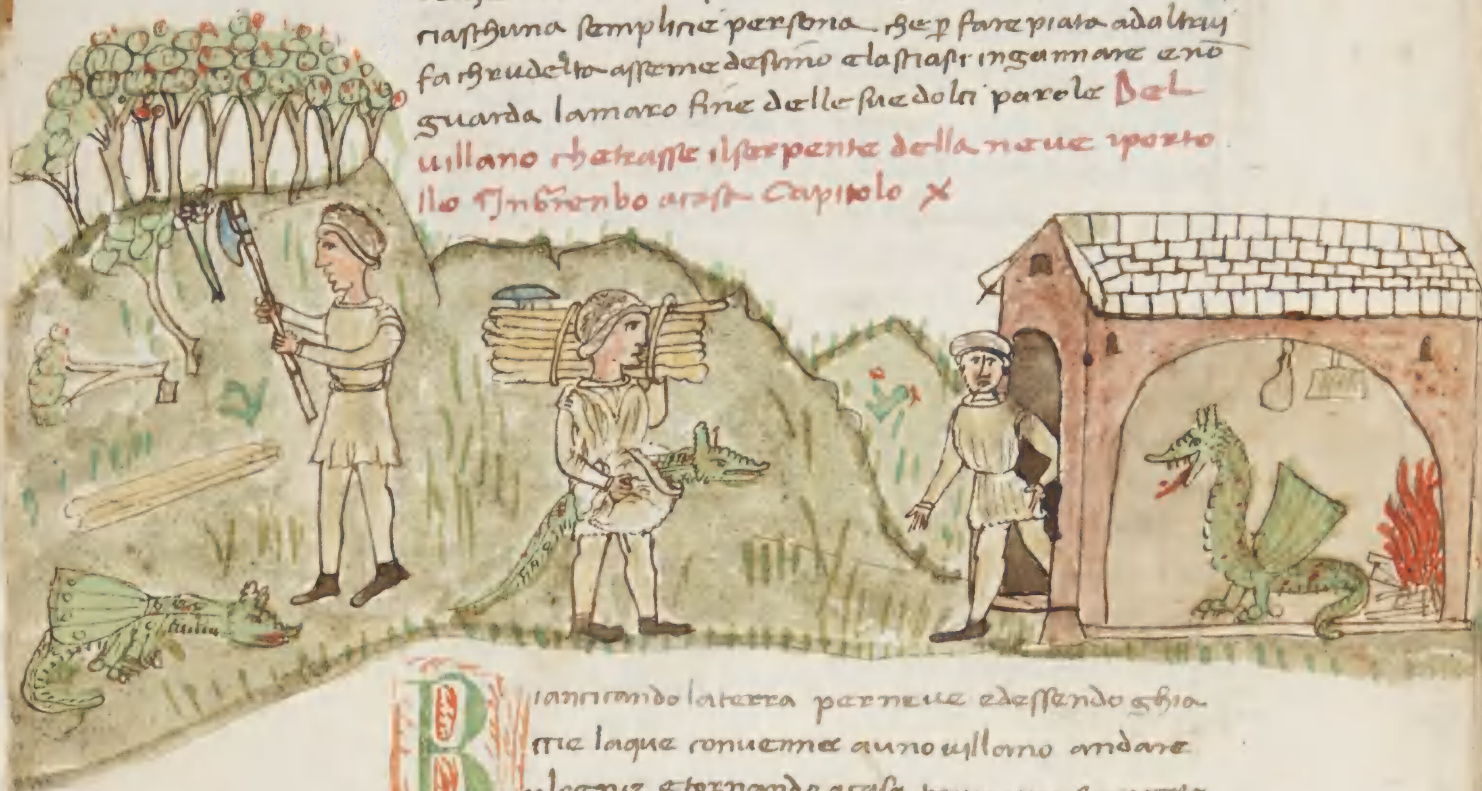 ciaschuna semplicie persona che ꝑ fare piata adaltrui
fa chrudelta asseme desimo elasciasi ingannare enō
guarda lamaro fine delle sue dolci parole Del
villano chetrasse ilserpente della neve iporto
llo acasa Capitolo X
Biancicando laterra perneve edessendo ghia
ccie laque convenne auno villano andare
legnie etornando acasa